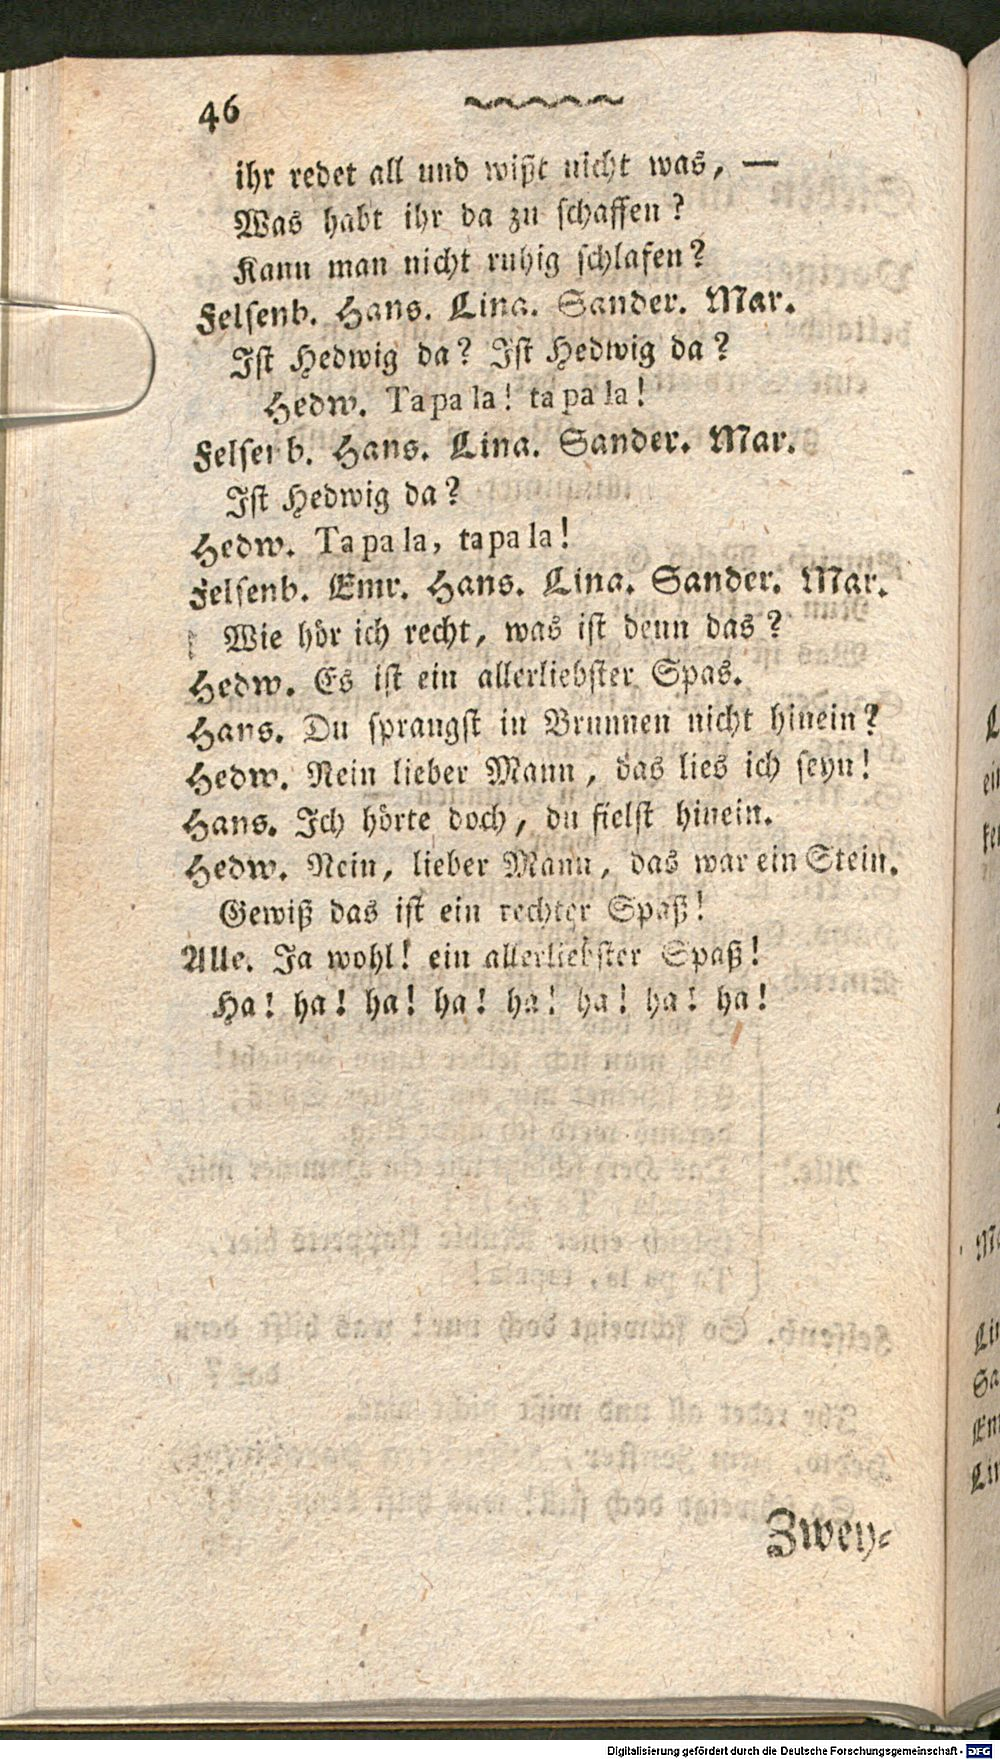 46
ihr redet all und wißt nicht was, —
Was habt ihr da zu schaffen?
Kann man nicht ruhig schlafen?
Felsenb. Hans. Lina. Sander. Mar.
Ist Hedwig da? Ist Hedwig da?
Hedw. Tapala! tapala!
Felsenb. Hans. Lina. Sander. Mar.
Ist Hedwig da?
Hedw. Tapala, tapala!
Felsenb. Emr. Hans. Lina. Sander. Mar.
Wie hör ich recht, was ist denn das?
Hedw. Es ist ein allerliebster Spas.
Hans. Du sprangst in Brunnen nicht hinein?
Hedw. Nein lieber Mann, das lies ich seyn!
Hans. Ich hörte doch, du fielst hinein.
Hedw. Nein, lieber Mann, das war ein Stein.
Gewiß das ist ein rechter Spaß!
Alle. Ja wohl! ein allerliebster Spaß!
Ha! ha! ha! ha! ha! ha! ha! ha!
Zwey-
Digitalisierung gefördert durch die Deutsche Forschungsgemeinschaft - DFG